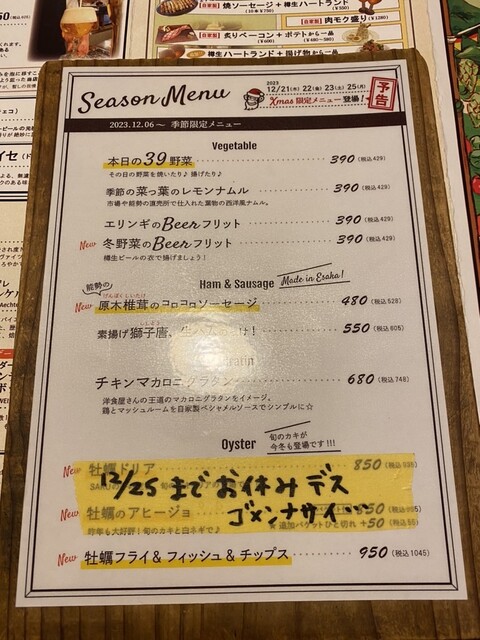 焼ソーセージ + 樽生ハートランド
肉モク盛り
炙りベーコン + ポテトから一品
樽生ハートランド + 揚げ物から一品
Season Menu
2023
12/21(木) 22(金) 23(土) 25(月)
Xmas 限定メニュー 登場!
予告
2023.12.06〜 季節限定メニュー
Vegetable
本日の39野菜 390 (税込429)
その日の野菜を焼いたり♪ 揚げたり♪
季節の菜っ葉のレモンナムル 390 (税込429)
市場や能勢の直売所で仕入れた葉物の西洋風ナムル。
エリンギのBeerフリット 390 (税込429)
New 冬野菜のBeerフリット 390 (税込429)
樽生ビールの衣で揚げましょう!
Ham & Sausage
Made in Esaka!
能勢の
げんぼくしいたけ
New 原木椎茸のコロコロソーセージ 480 (税込528)
素揚げ獅子唐、生ハム け! 550 (税込605)
チキンマカロニグラタン 680 (税込748)
洋食屋さんの王道のマカロニグラタンをイメージ。
鶏とマッシュルームを自家製ベシャメルソースでシンプルに☆
Oyster
旬のカキが
今冬も登場です!!!
New 牡蠣ドリア 850
12/25までお休みデス
ゴメンナサイ…
New 牡蠣のアヒージョ 50
昨年も大好評!旬のカキと白ネギで♪
☆追加バゲットひと切れ +50 (税込55)
New 牡蠣フライ& フィッシュ & チップス 950 (税込1045)